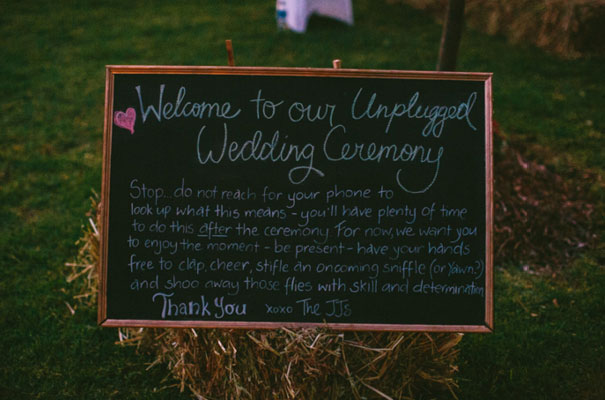 Welcome to our Unplugged
Wedding Ceremony
Stop... do not reach for your phone to
look up what this means - you'll have plenty of time
to do this after the ceremony. For now, we want you
to enjoy the moment - be present - have your hands
free to clap, cheer, stifle an oncoming sniffle (or yawn?)
and shoo away those flies with skill and determination
Thank You xoxo The JJs